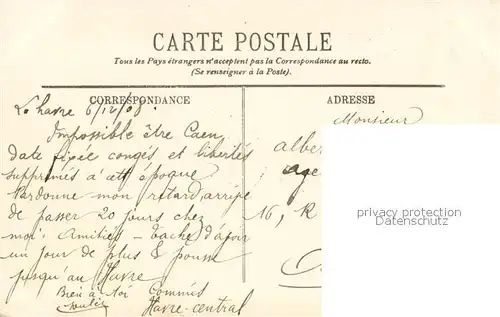 CARTE POSTALE
Tous les Pays étrangers n'acceptent pas la Correspondance au recto.
(Se renseigner à la Poste).
CORRESPONDANCE
Le havre 6/12/08
Impossible être Caen,
date fixée congés et libertés
supprimés à cett époque
Pardonne mon retard, arrive
de passer 20 jours chez
moi. Amitiés - Tache d'avoir
un jour de plus & pousse
jusqu'au Havre
Bien à toi
Commis
Havre-central
ADRESSE
Monsieur
Albe
age
16, R
privacy protection
Datenschutz